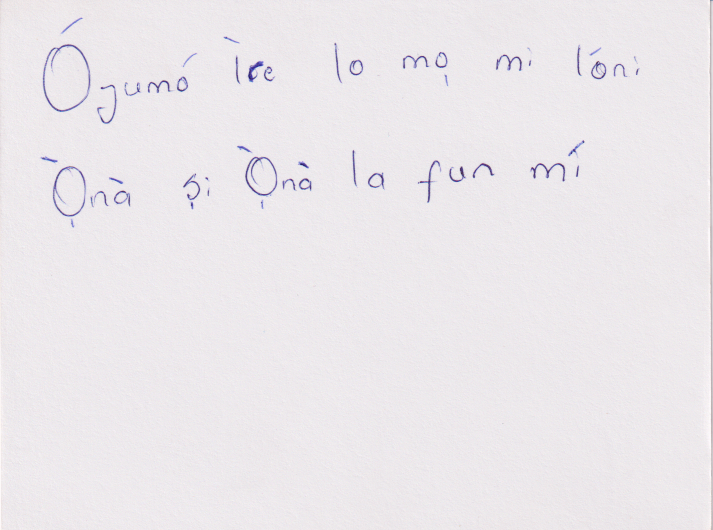 Ógumó Ìre lo mọ mi lóni
Ọ̀nà ṣi Ọ̀nà la fun mí